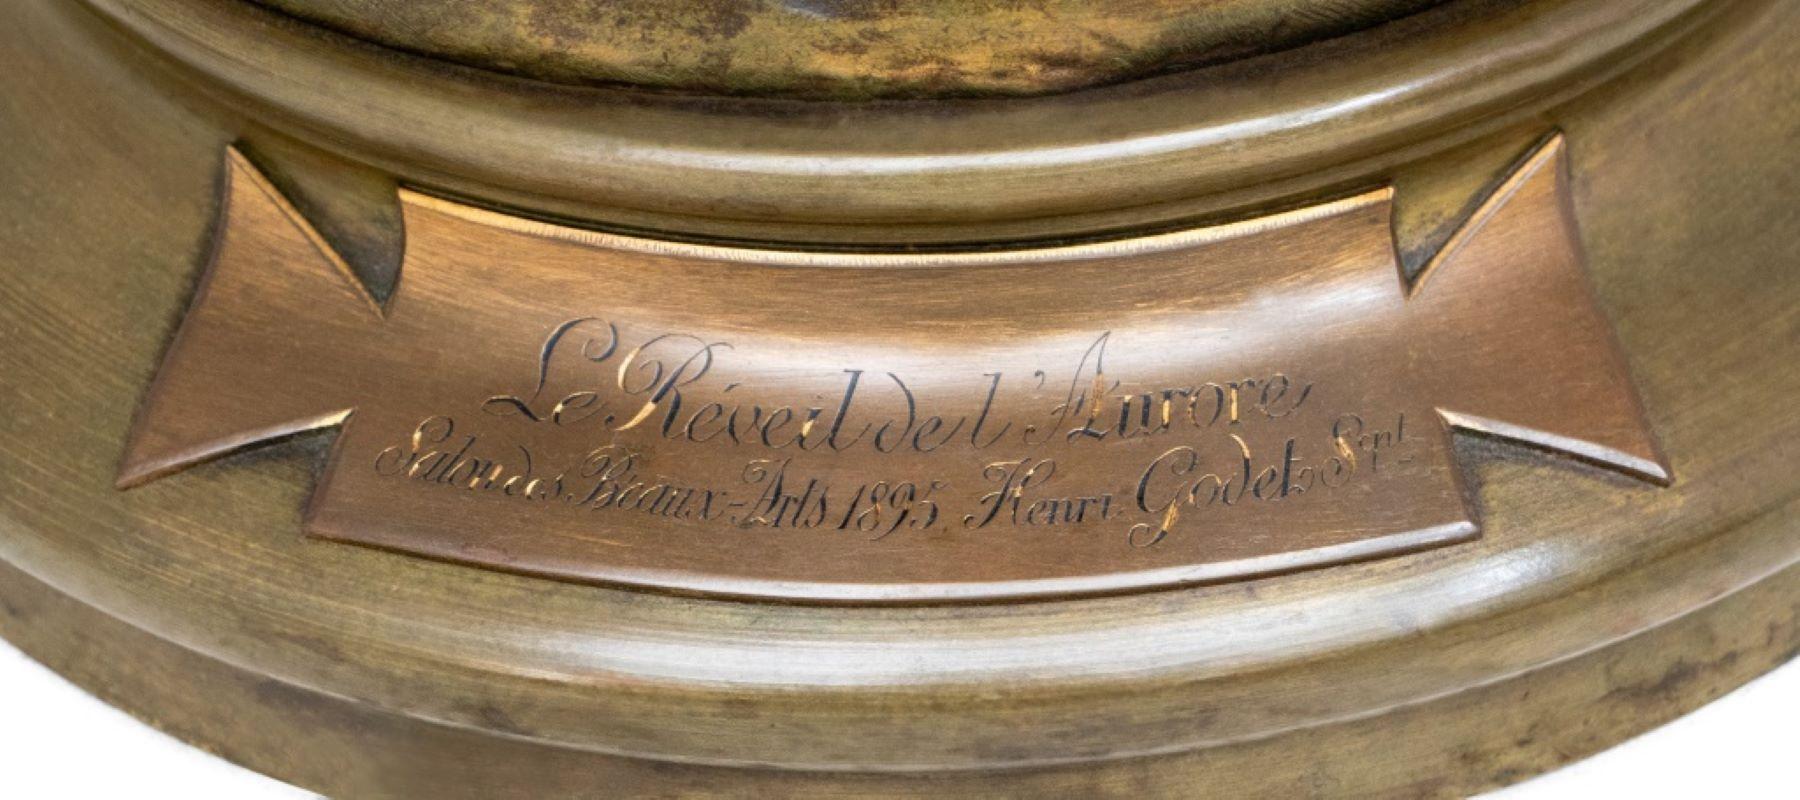 Le Réveil de l'Aurore
Salon des Beaux-Arts 1895. Henri Godet Scpt